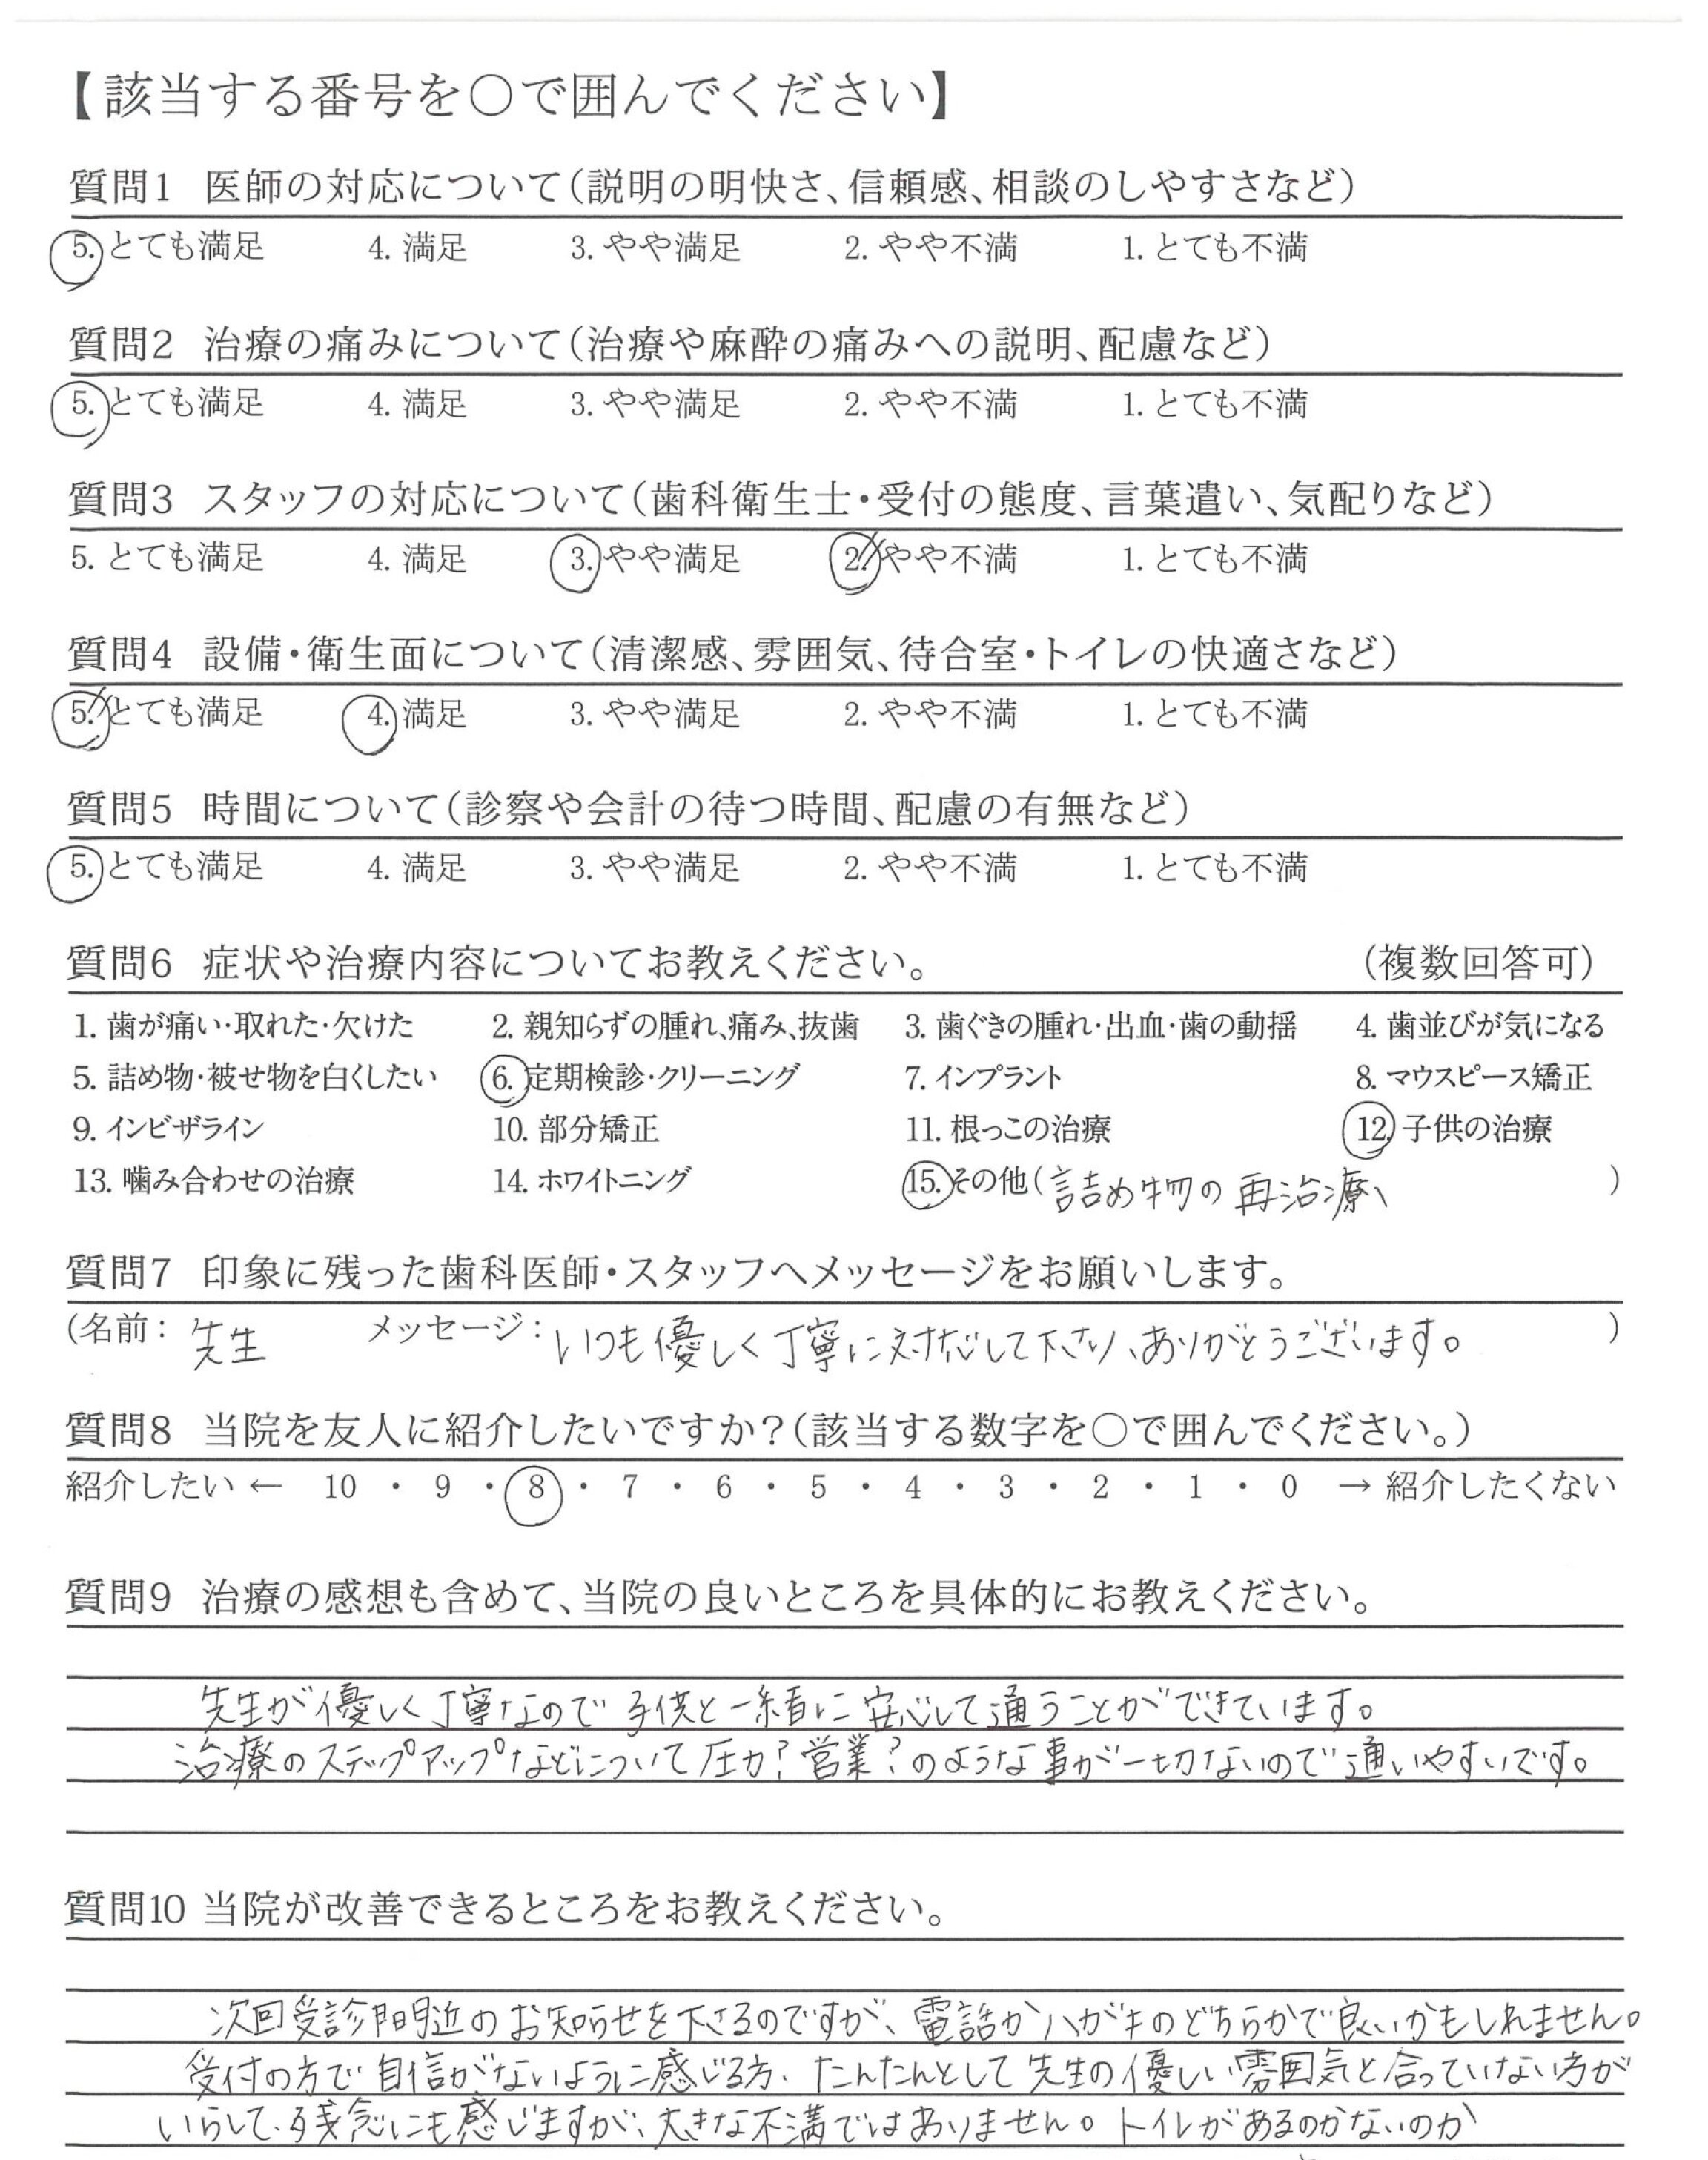 【該当する番号を○で囲んでください】
質問1 医師の対応について(説明の明快さ、信頼感、相談のしやすさなど)
5. とても満足 4. 満足 3. やや満足 2. やや不満 1. とても不満
質問2 治療の痛みについて(治療や麻酔の痛みへの説明、配慮など)
5. とても満足 4. 満足 3. やや満足 2. やや不満 1. とても不満
質問3 スタッフの対応について(歯科衛生士・受付の態度、言葉遣い、気配りなど)
5. とても満足 4. 満足 3. やや満足 2. やや不満 1. とても不満
質問4 設備・衛生面について(清潔感、雰囲気、待合室・トイレの快適さなど)
5. とても満足 4. 満足 3. やや満足 2. やや不満 1. とても不満
質問5 時間について(診察や会計の待つ時間、配慮の有無など)
5. とても満足 4. 満足 3. やや満足 2. やや不満 1. とても不満
質問6 症状や治療内容についてお教えください。 (複数回答可)
1. 歯が痛い・取れた・欠けた 2. 親知らずの腫れ、痛み、抜歯 3. 歯ぐきの腫れ・出血・歯の動揺 4. 歯並びが気になる
5. 詰め物・被せ物を白くしたい 6. 定期検診・クリーニング 7. インプラント 8. マウスピース矯正
9. インビザライン 10. 部分矯正 11. 根っこの治療 12. 子供の治療
13. 噛み合わせの治療 14. ホワイトニング 15. その他(詰め物の再治療、)
質問7 印象に残った歯科医師・スタッフへメッセージをお願いします。
(名前: 先生 メッセージ: いつも優しく丁寧に対応して下さり、ありがとうございます。)
質問8 当院を友人に紹介したいですか?(該当する数字を○で囲んでください。)
紹介したい ← 10 ・ 9 ・ 8 ・ 7 ・ 6 ・ 5 ・ 4 ・ 3 ・ 2 ・ 1 ・ 0 → 紹介したくない
質問9 治療の感想も含めて、当院の良いところを具体的にお教えください。
先生が優しく丁寧なので子供と一緒に安心して通うことができています。
治療のステップアップなどについて圧力?営業?のような事が一切ないので通いやすいです。
質問10 当院が改善できるところをお教えください。
次回受診間近のお知らせを下さるのですが、電話かハガキのどちらかで良いかもしれません。
受付の方で自信がないように感じる方、たんたんとして先生の優しい雰囲気と合っていない方が
いらして、残念にも感じますが、大きな不満ではありません。トイレがあるのかないのか